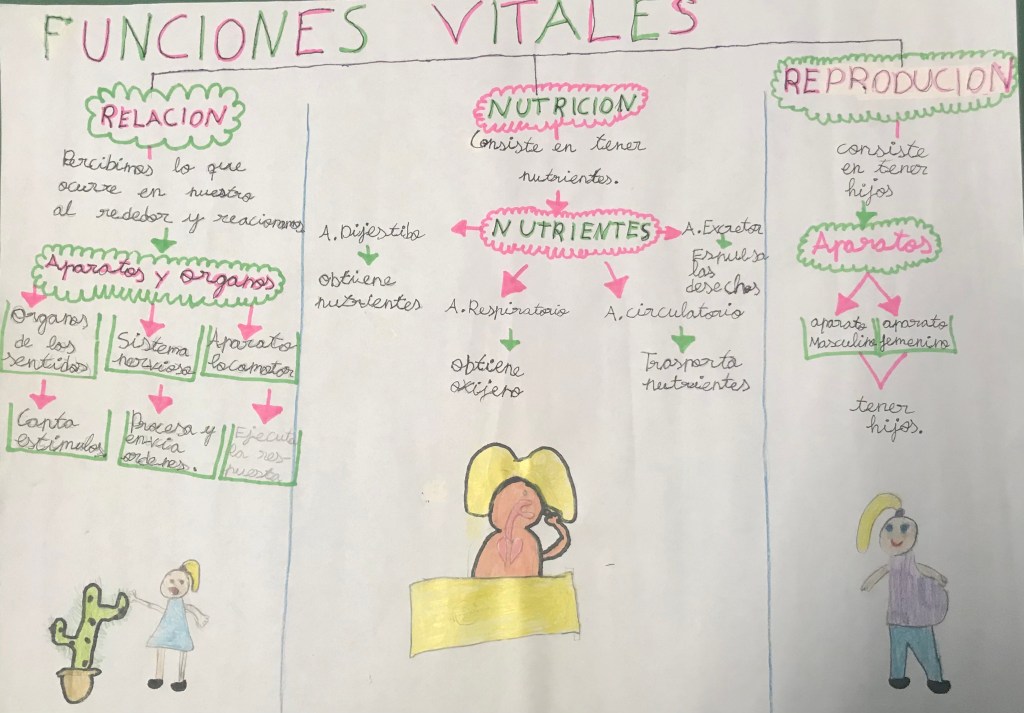 FUNCIONES VITALES
RELACION
Percibimos lo que
ocurre en nuestro
al rededor y reacionamos
Aparatos y organos
Organos
de los
sentidos
Sistema
nervioso
Aparato
locomotor
Capta
estimulos
Procesa y
envia
ordenes.
Ejecuta
la res-
puesta
NUTRICION
Consiste en tener
nutrientes.
NUTRIENTES
A. Dijestibo
obtiene
nutrientes
A. Respiratorio
obtiene
oxijeno
A. circulatorio
Trasporta
nutrientes
A. Excretor
Espulsa
las
desechos
REPRODUCION
consiste
en tener
hijos
Aparatos
aparato
Masculino
aparato
femenino
tener
hijos.